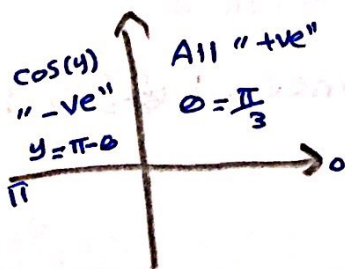 cos(y)
"-ve"
y=π-θ
All "+ve"
θ=π/3
π
0